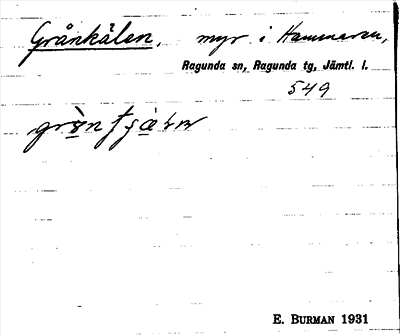 Grånkälen, myr i Hammaren,
Ragunda sn, Ragunda tg, Jämtl. l.
549
E. BURMAN 1931